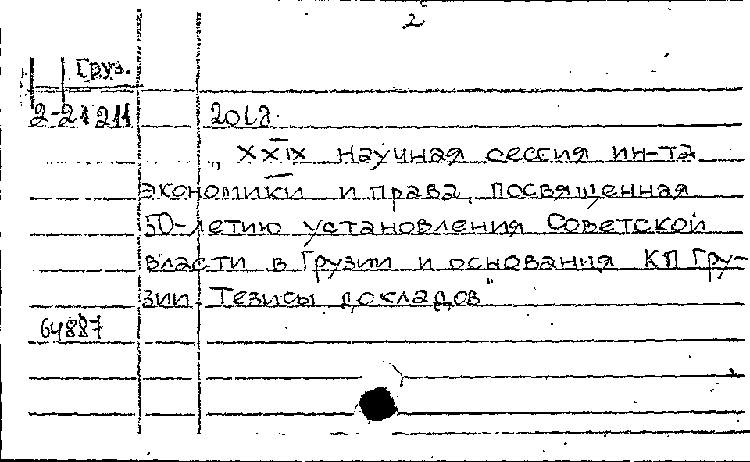 2
Груз.
2-21211
„XXIX научная сессия ин-та
экономики и права, посвященная
50-летию установления Советской
власти в Грузии и основания КП Гру-
зии. Тезисы докладов"
64887